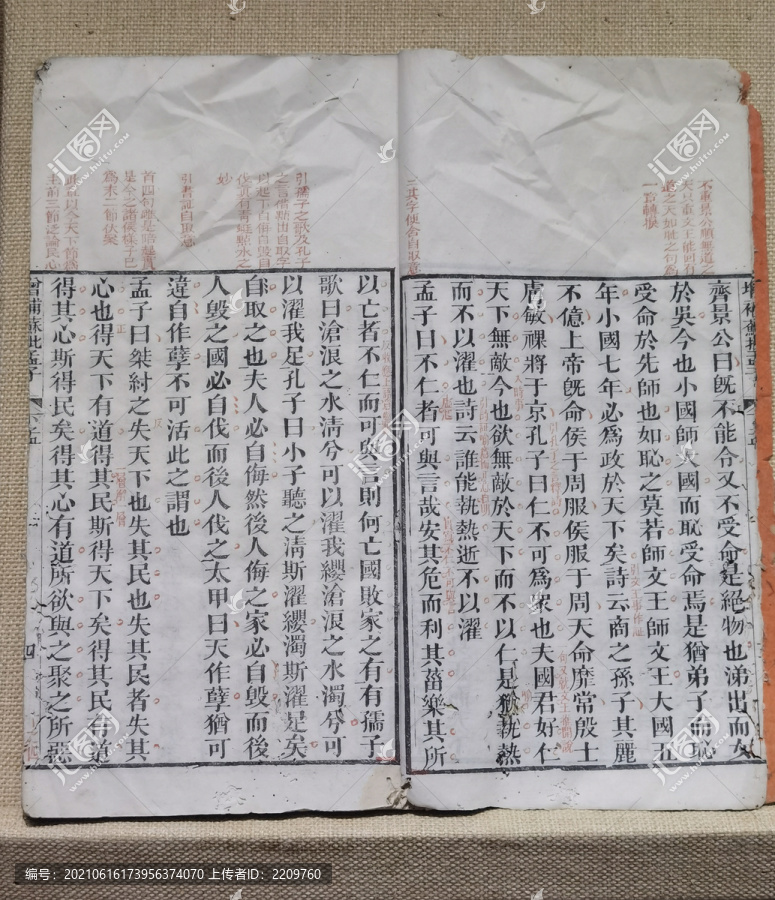 齊景公曰旣不能令又不受命是絕物也涕出而女
於吳今也小國師大國而恥受命焉是猶弟子而恥
受命於先師也如恥之莫若師文王師文王大國五
年小國七年必爲政於天下矣詩云商之孫子其麗
不億上帝旣命侯于周服侯服于周天命靡常殷士
膚敏祼將于京孔子曰仁不可爲衆也夫國君好仁
天下無敵今也欲無敵於天下而不以仁是猶執熱
而不以濯也詩云誰能執熱逝不以濯
孟子曰不仁者可與言哉安其危而利其菑樂其所
以亡者不仁而可與言則何亡國敗家之有有孺子
歌曰滄浪之水淸兮可以濯我纓滄浪之水濁兮可
以濯我足孔子曰小子聽之淸斯濯纓濁斯濯足矣
自取之也夫人必自侮然後人侮之家必自毀而後
人毀之國必自伐而後人伐之太甲曰天作孽猶可
違自作孽不可活此之謂也
孟子曰桀紂之失天下也失其民也失其民者失其
心也得天下有道得其民斯得天下矣得其民有道
得其心斯得民矣得其心有道所欲與之聚之所惡
增補蘇批孟子
四
三其字便含自取意
引孺子之歌及孔子
之言借點出自取字
引書証自取意
妙
首四句
爲末二節伏案
编号：20210616173956374070 上传者ID：2209760
汇图网
www.huitu.com